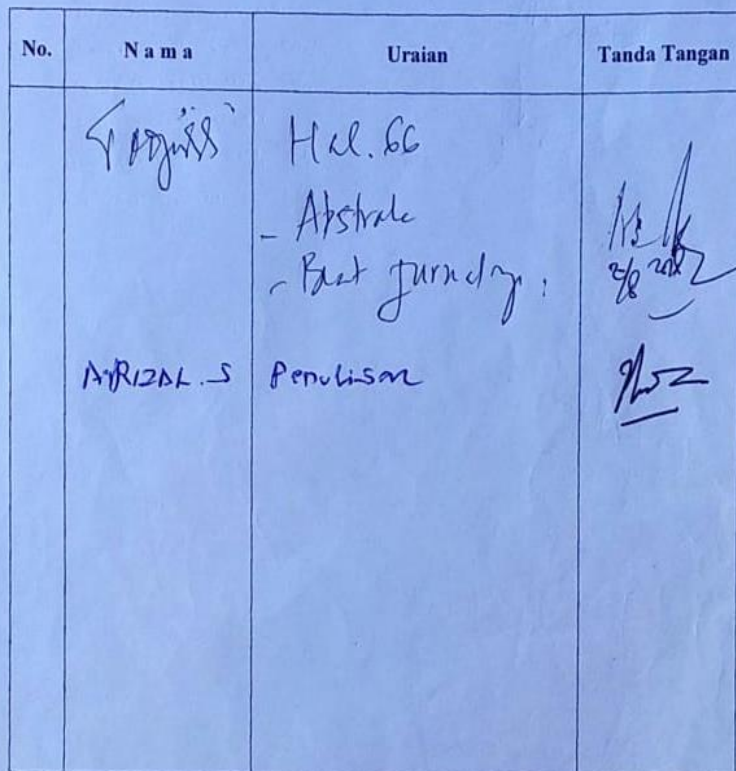 No. Nama Uraian Tanda Tangan
Hal. 66
- Abstrak
- Buat jurnalnya.
AFRIZAL.S Penulisan